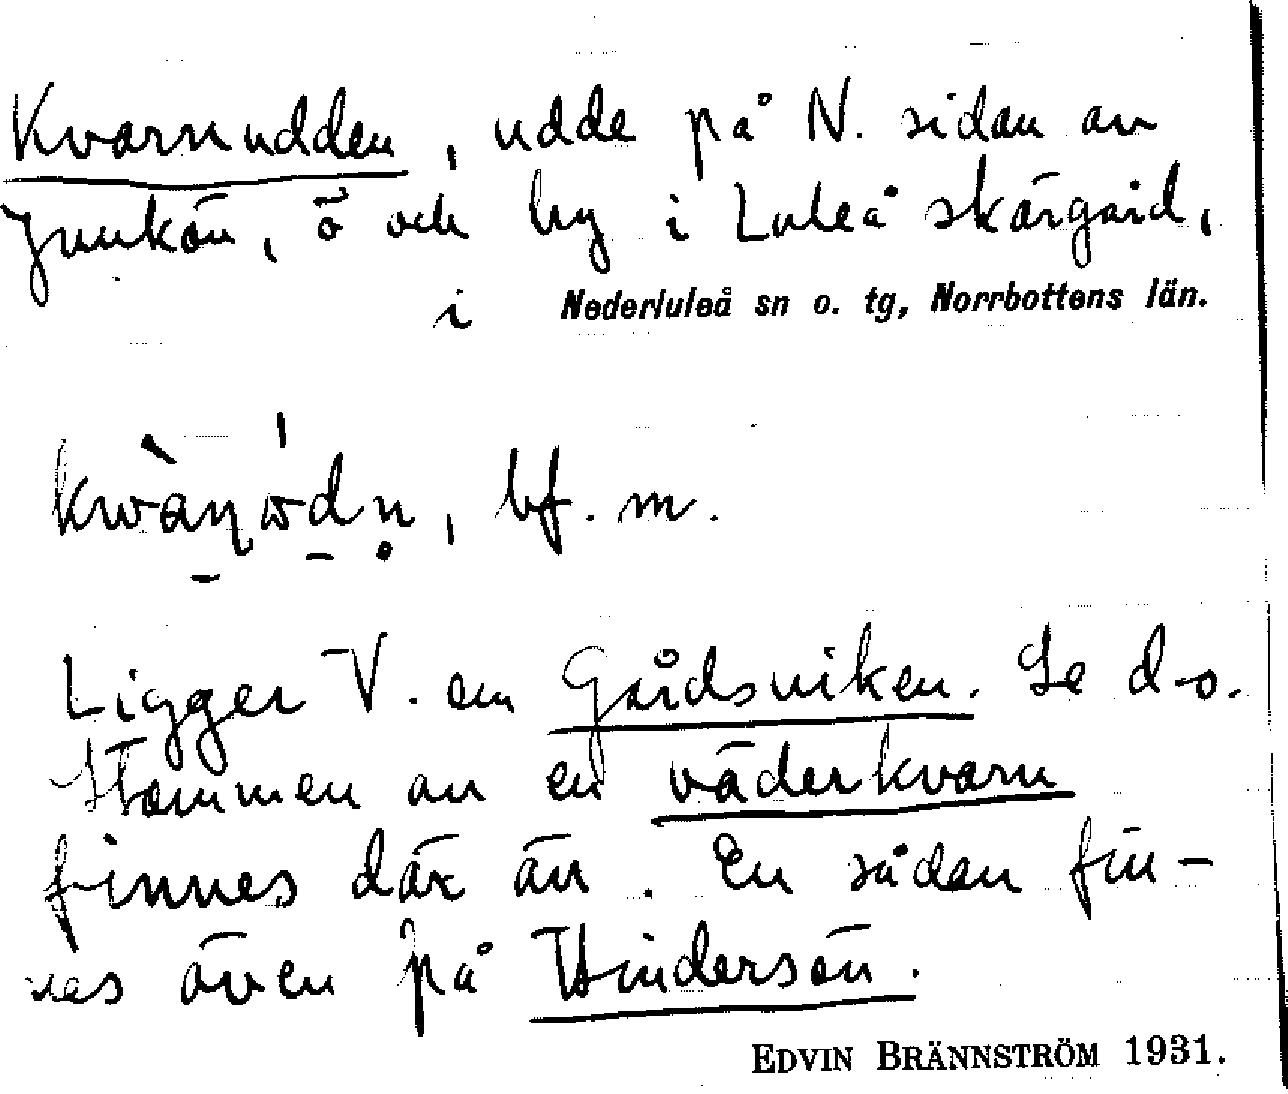 Kvarnudden, udde på N. sidan av
Junkön, ö och by i Luleå skärgård,
i Nederluleå sn o. tg, Norrbottens län.
bf. m.
Ligger V. om Gårdsviken. Se d-o.
Stommen av en väderkvarn
finnes där än. En sådan fin-
nes även på Hindersön.
EDVIN BRÄNNSTRÖM 1931.